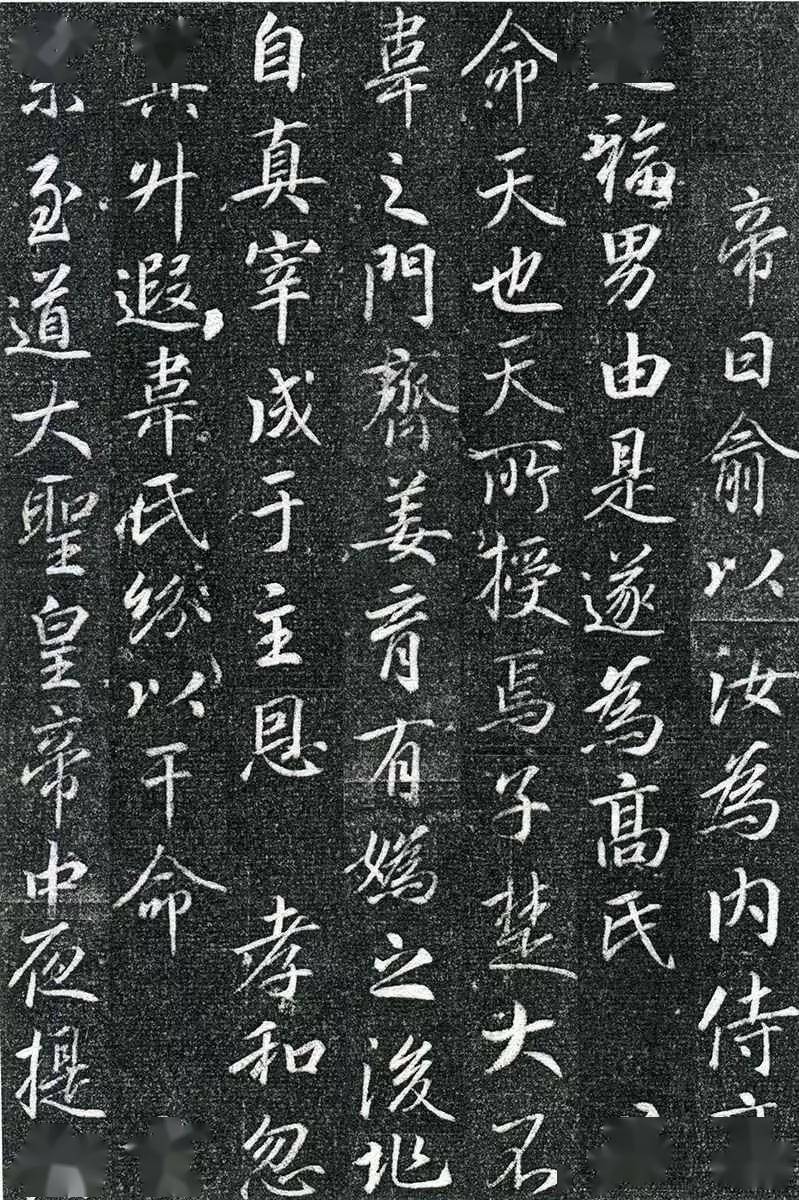 帝曰俞以汝為内侍
福男由是遂為髙氏
命天也天所授焉子楚大不
韋之門齊姜育有媯之後兆
自真宰成于主恩 孝和忽
升遐韋氏紛以干命
至道大聖皇帝中夜提